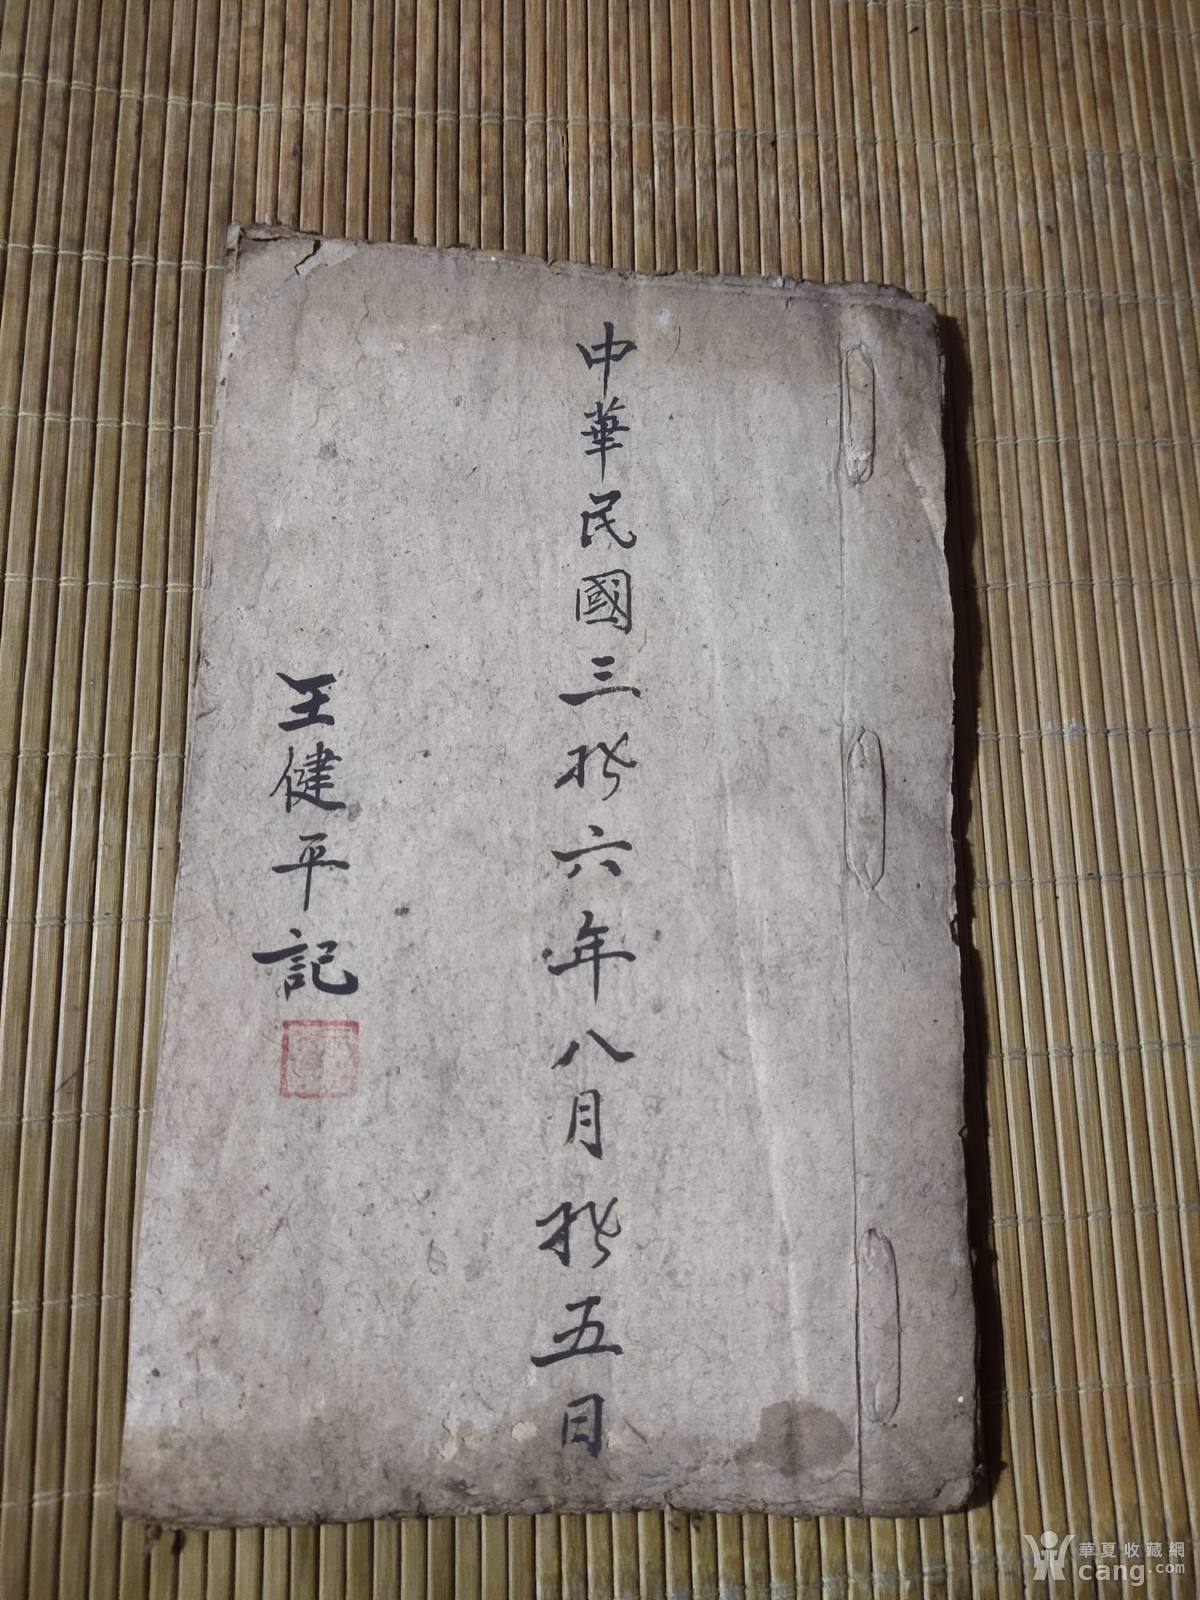 中華民國三拾六年八月拾五日
王健平記
華夏收藏網
cang.com